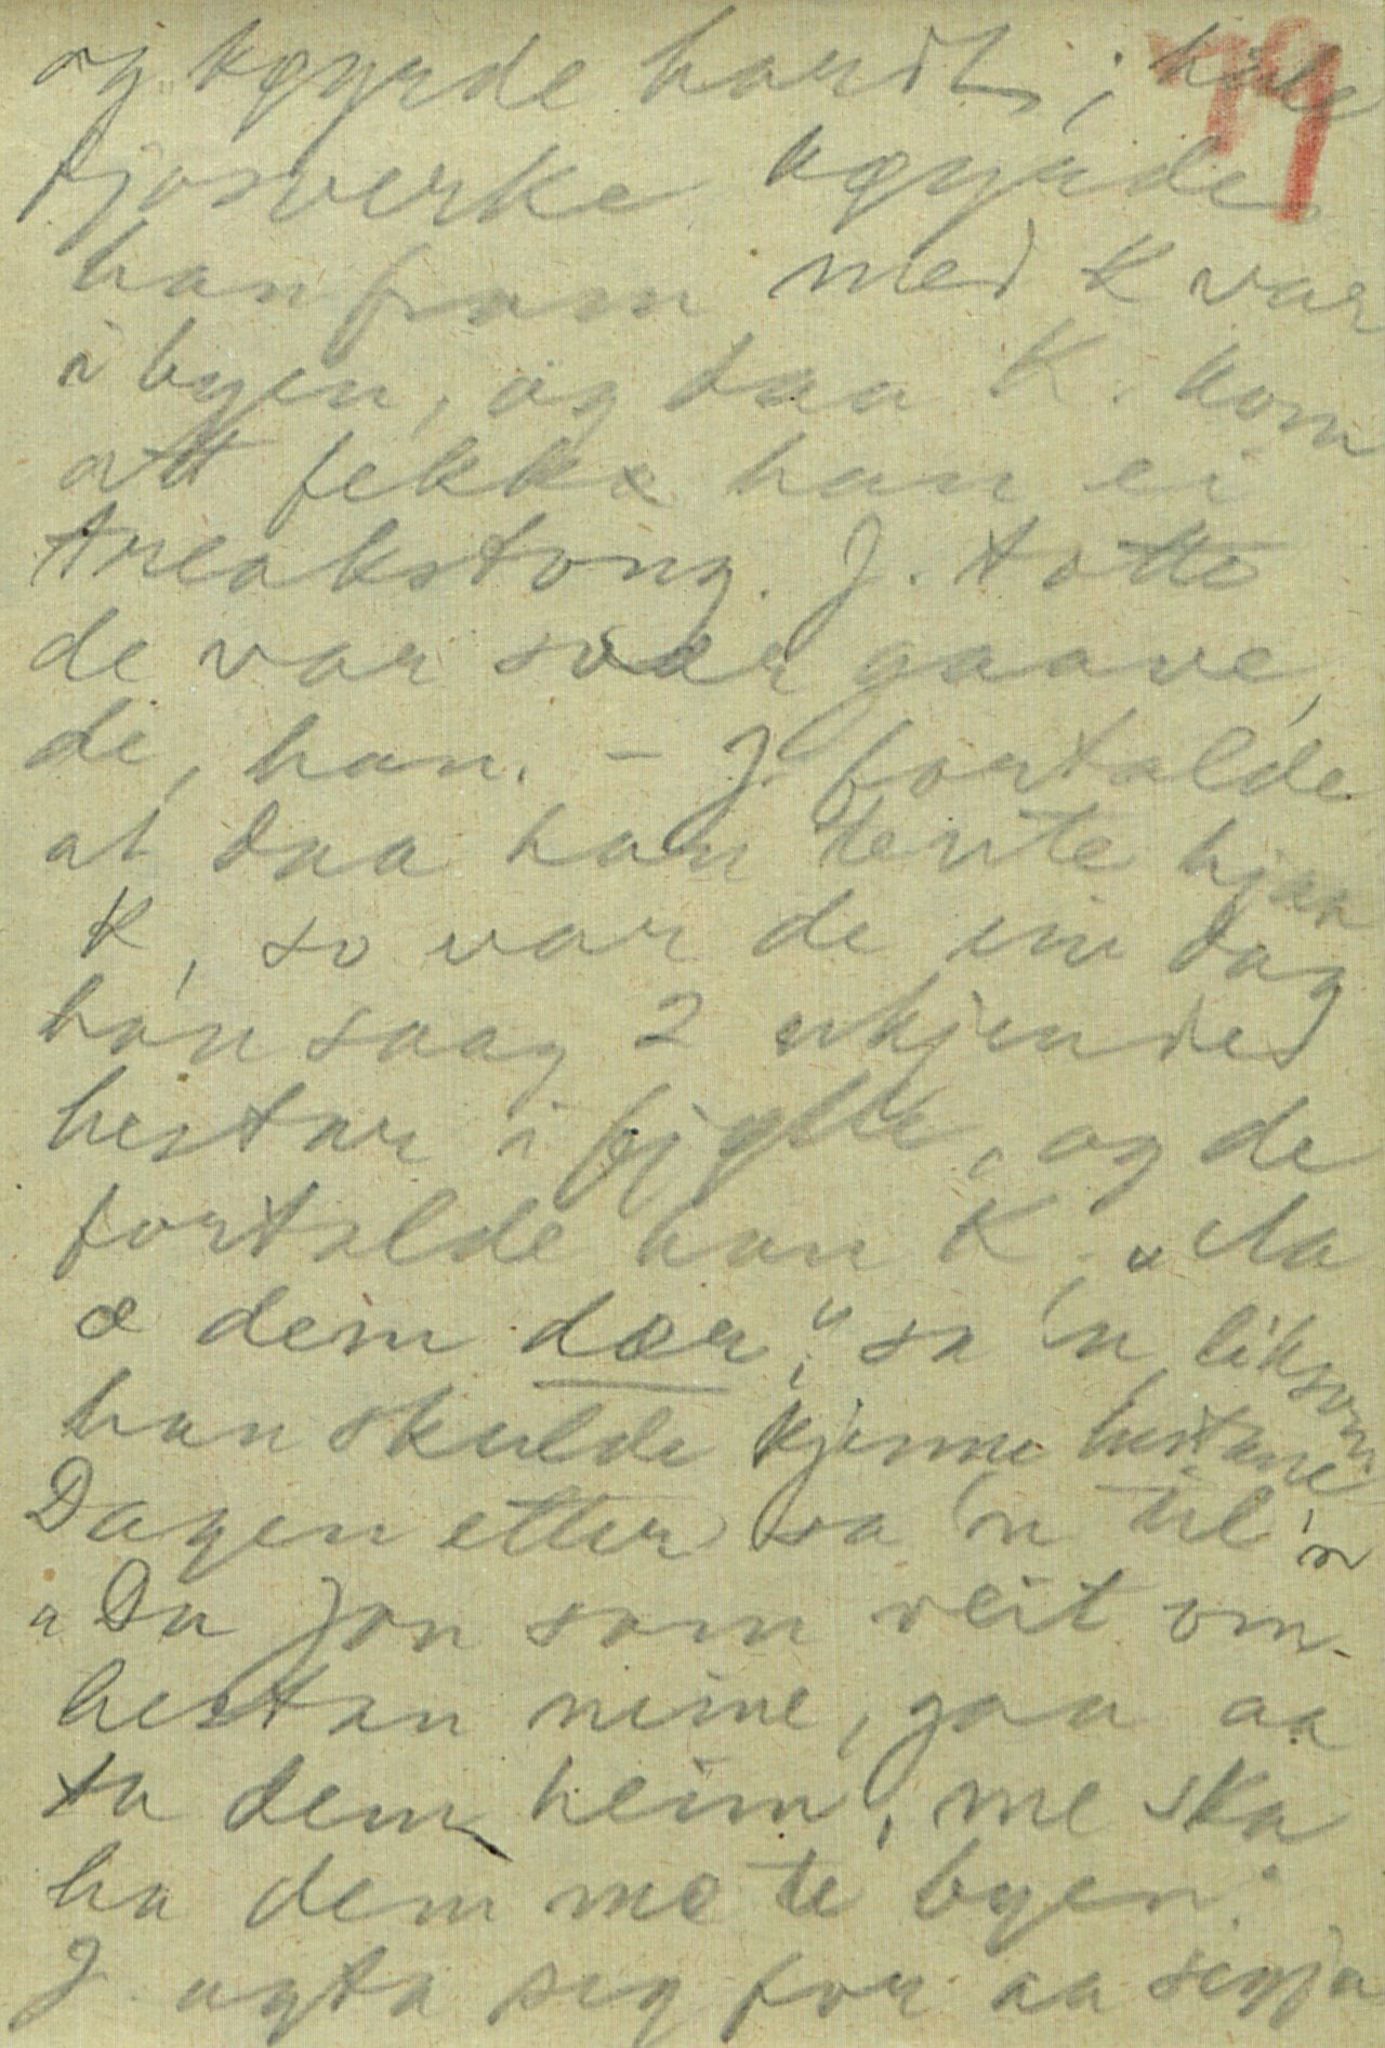 og køyrde hardt; heile
fjosverke køyrde
han fram med K var
i byen, og daa K. kom
att fekk han ei
tneakstong. J. totte
de var svær gaave,
de, han. – J. fortalde
at daa han tente hjaa
K, so var de ein dag
han saag 2 ukjende
hestar i fjølle, og de
fortalde han K. „Aa
æ dem dær," sa 'n, liksom
han skulde kjenne hestane
Dagen etter sa 'n til 'n
„Du Jon som veit om
hestan mine, gaa aa
ta dem heim, me ska
ha dem mæ te byen.
J. agta seg for aa segja
79